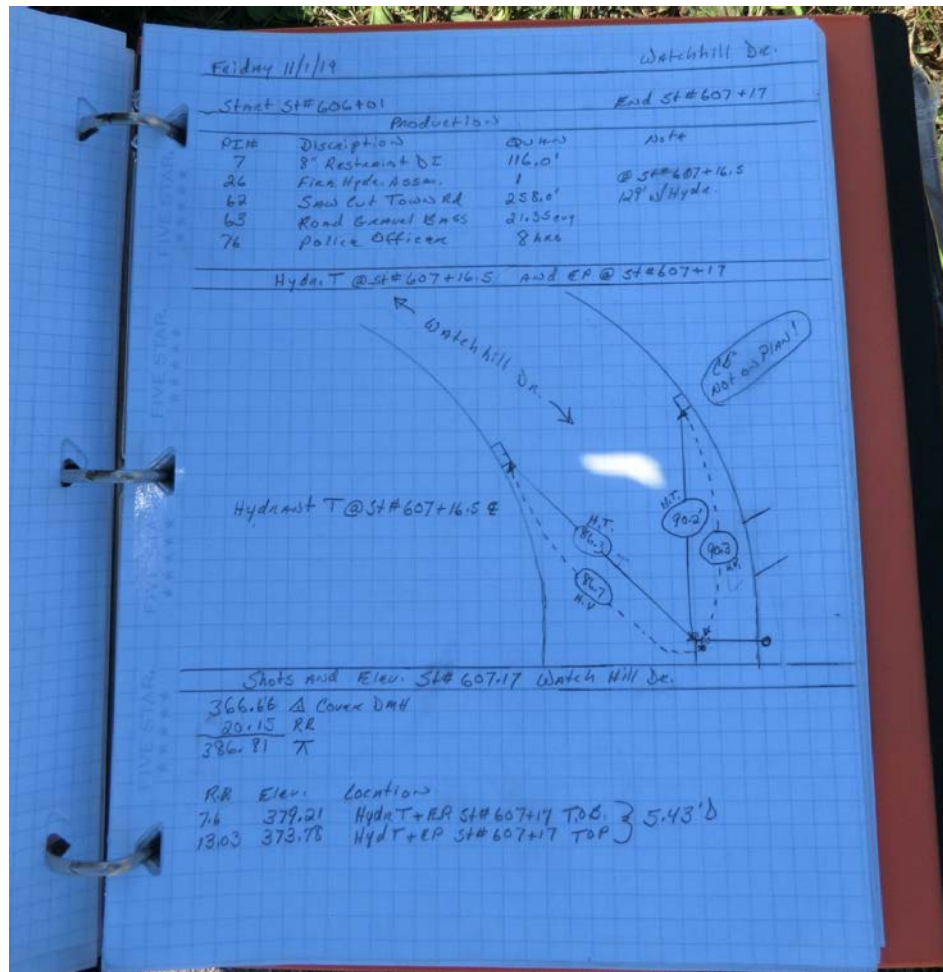 Friday 11/1/19 Watchhill Dr.
Start St# 606+01 End St# 607+17
Production
PI# Discription Quan Note
7 8" Restraint DI 116.0'
26 Fire Hydr. Assm. 1 @ St# 607+16.5
62 Saw Cut Town Rd 258.0' 129' w/Hydr.
63 Road Gravel Bass 21.35
76 Police Officer 8 hrs
Hydr. T @ St# 607+16.5 And EP @ St# 607+17
Watchhill Dr.
CB
Not on Plan!
Hydrant T @ St# 607+16.5
H.T.
90.2'
H.T.
86.3
90.3
86.7
H.V
Shots and Elev. St# 607.17 Watch Hill Dr.
366.66 Δ Cover DMH
20.15 RR
386.81 ⊼
R.R Elev. Location
7.6 379.21 Hydr T + EP St# 607+17 T.O.B.
13.03 373.78 Hyd T + EP St# 607+17 TOP } 5.43'D
FIVE STAR.
FIVE STAR.
FIVE STAR.